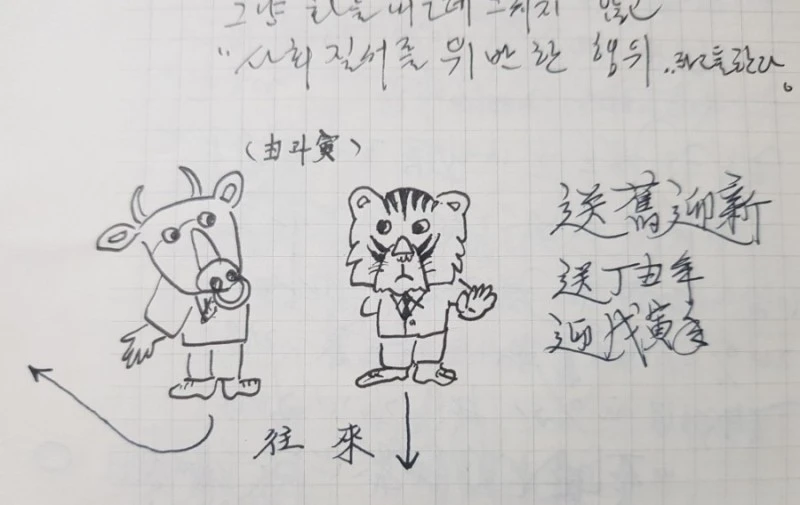 그냥 화를 내는데 그치지 않고
"사회 질서를 위반한 행위
(丑과 寅)
送舊迎新
送丁丑年
迎戊寅年
往 來